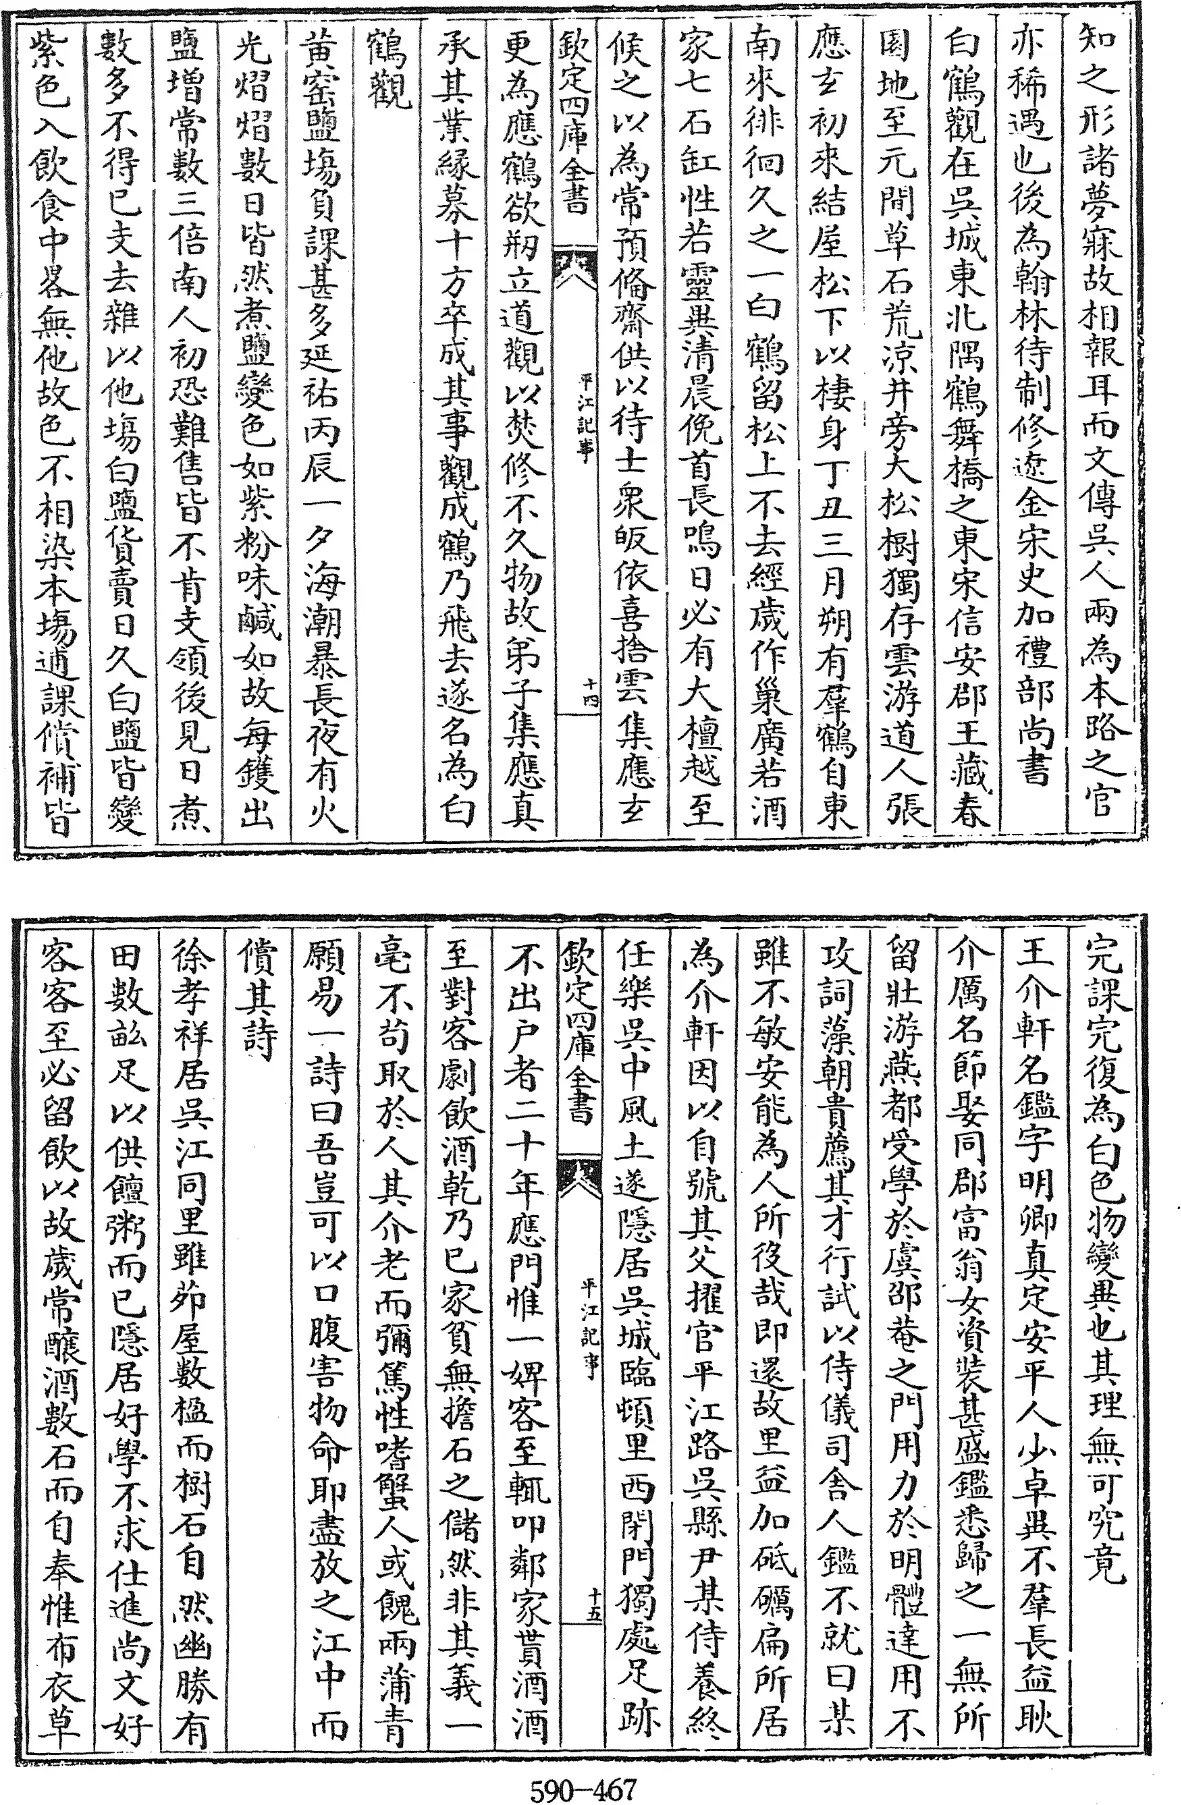 知之形諸夢寐故相報耳而文傳吳人兩為本路之官
亦稀遇也後為翰林待制修遼金宋史加禮部尚書
白鶴觀在吳城東北隅鶴舞橋之東宋信安郡王藏春
園地至元間草石荒凉井旁大松樹獨存雲游道人張
應玄初來結屋松下以棲身丁丑三月朔有羣鶴自東
南來徘徊久之一白鶴留松上不去經歲作巢廣若酒
家七石缸性若靈異清晨俛首長鳴日必有大檀越至
候之以為常預備齋供以待士衆皈依喜捨雲集應玄
欽定四庫全書
平江記事
十四
更為應鶴欲剏立道觀以焚修不久物故弟子集應真
承其業緣募十方卒成其事觀成鶴乃飛去遂名為白
鶴觀
黄窑鹽塲負課甚多延祐丙辰一夕海潮暴長夜有火
光熠熠數日皆然煮鹽變色如紫粉味鹹如故每鑊出
鹽增常數三倍南人初恐難售皆不肯支領後見日煮
數多不得已支去雜以他塲白鹽貨賣日久白鹽皆變
紫色入飲食中畧無他故色不相染本塲逋課償補皆
完課完復為白色物變異也其理無可究竟
王介軒名鑑字明卿真定安平人少卓異不羣長益耿
介厲名節娶同郡富翁女資裝甚盛鑑悉歸之一無所
留壯游燕都受學於虞邵菴之門用力於明體達用不
攻詞藻朝貴薦其才行試以侍儀司舍人鑑不就曰某
雖不敏安能為人所役哉即還故里益加砥礪扁所居
為介軒因以自號其父擢官平江路吳縣尹某侍養終
任樂吳中風土遂隱居吳城臨頓里西閉門獨處足跡
欽定四庫全書
平江記事
十五
不出户者二十年應門惟一婢客至輒叩鄰家貰酒酒
至對客劇飲酒乾乃已家貧無擔石之儲然非其義一
毫不苟取於人其介老而彌篤性嗜蟹人或餽兩蒲青
願易一詩曰吾豈可以口腹害物命耶盡放之江中而
償其詩
徐孝祥居吳江同里雖茆屋數楹而樹石自然幽勝有
田數畝足以供饘粥而已隱居好學不求仕進尚文好
客客至必留飲以故歲常釀酒數石而自奉惟布衣草
590-467